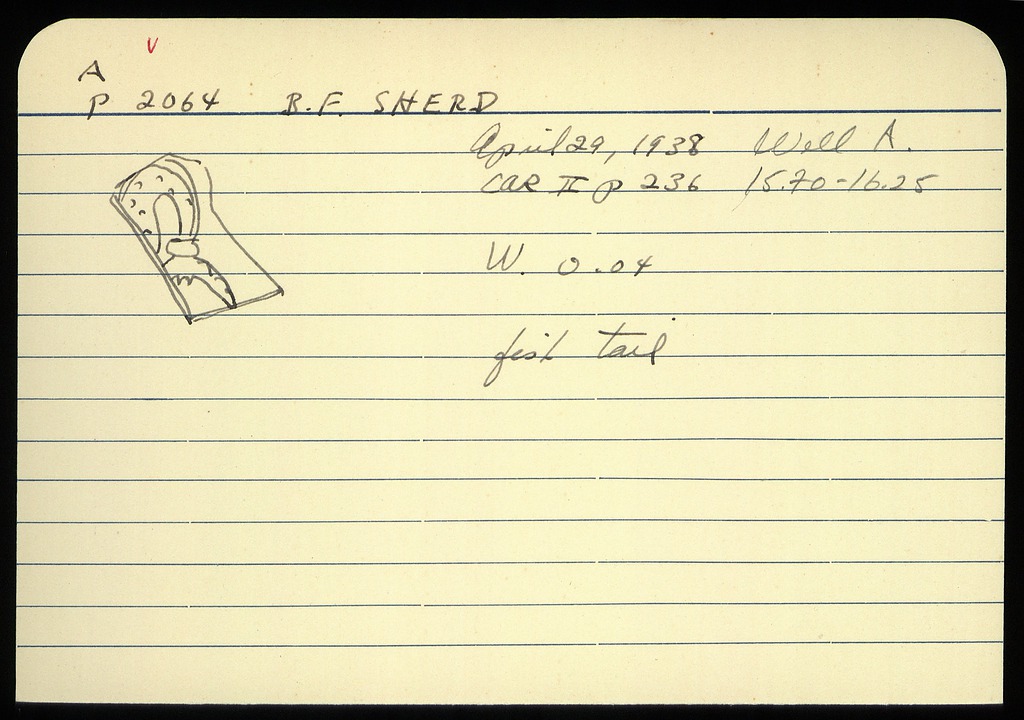 v
A
P 2064 B.F. SHERD
April 29, 1938 Well A.
CAR II p 236 15.70-16.25
W. 0.04
fish tail